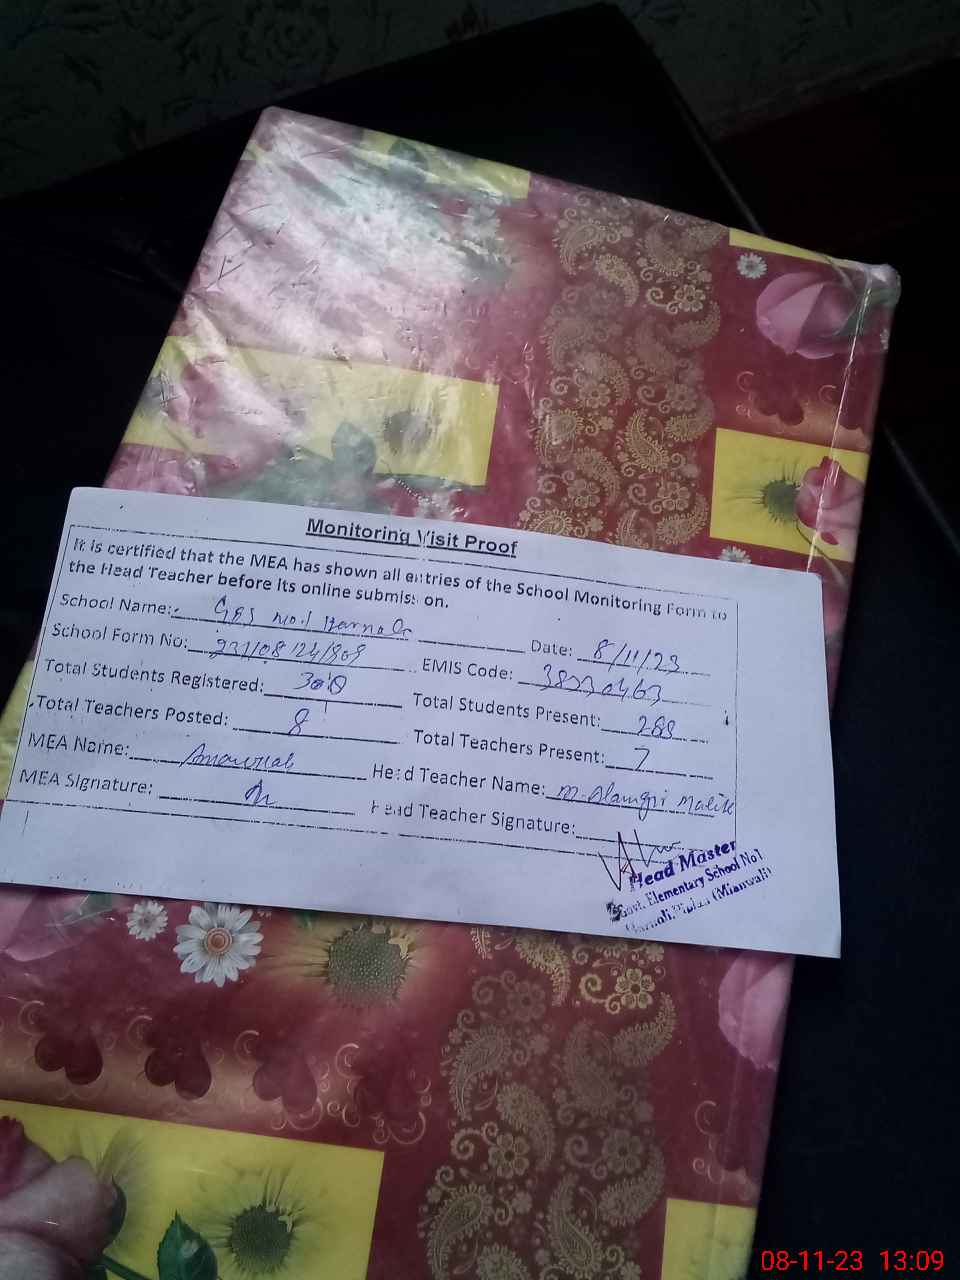 Monitoring Visit Proof
It is certified that the MEA has shown all entries of the School Monitoring Form to
the Head Teacher before its online submission.
School Name: No.1 Date: 8/11/23
School Form No: EMIS Code: 38230463
Total Students Registered: Total Students Present: 288
Total Teachers Posted: 8 Total Teachers Present: 7
MEA Name: Head Teacher Name: M. Alamgir Malik
MEA Signature: Head Teacher Signature:
Head Master
Govt. Elementary School No1
(Mianwali)
08-11-23 13:09